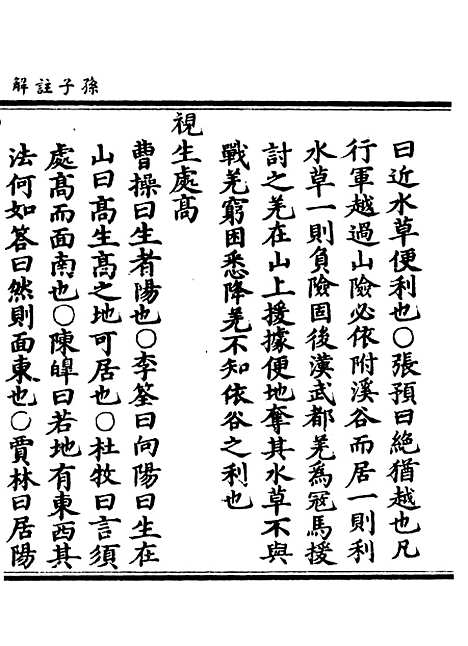 孫子註解
曰近水草便利也○張預曰絶猶越也凡
行軍越過山險必依附溪谷而居一則利
水草一則負險固後漢武都羌為冦馬援
討之羌在山上援據便地奪其水草不與
戰羌窮困悉降羌不知依谷之利也
視生處高
曹操曰生者陽也○李筌曰向陽曰生在
山曰高生高之地可居也○杜牧曰言須
處高而面南也○陳皥曰若地有東西其
法何如答曰然則面東也○賈林曰居陽